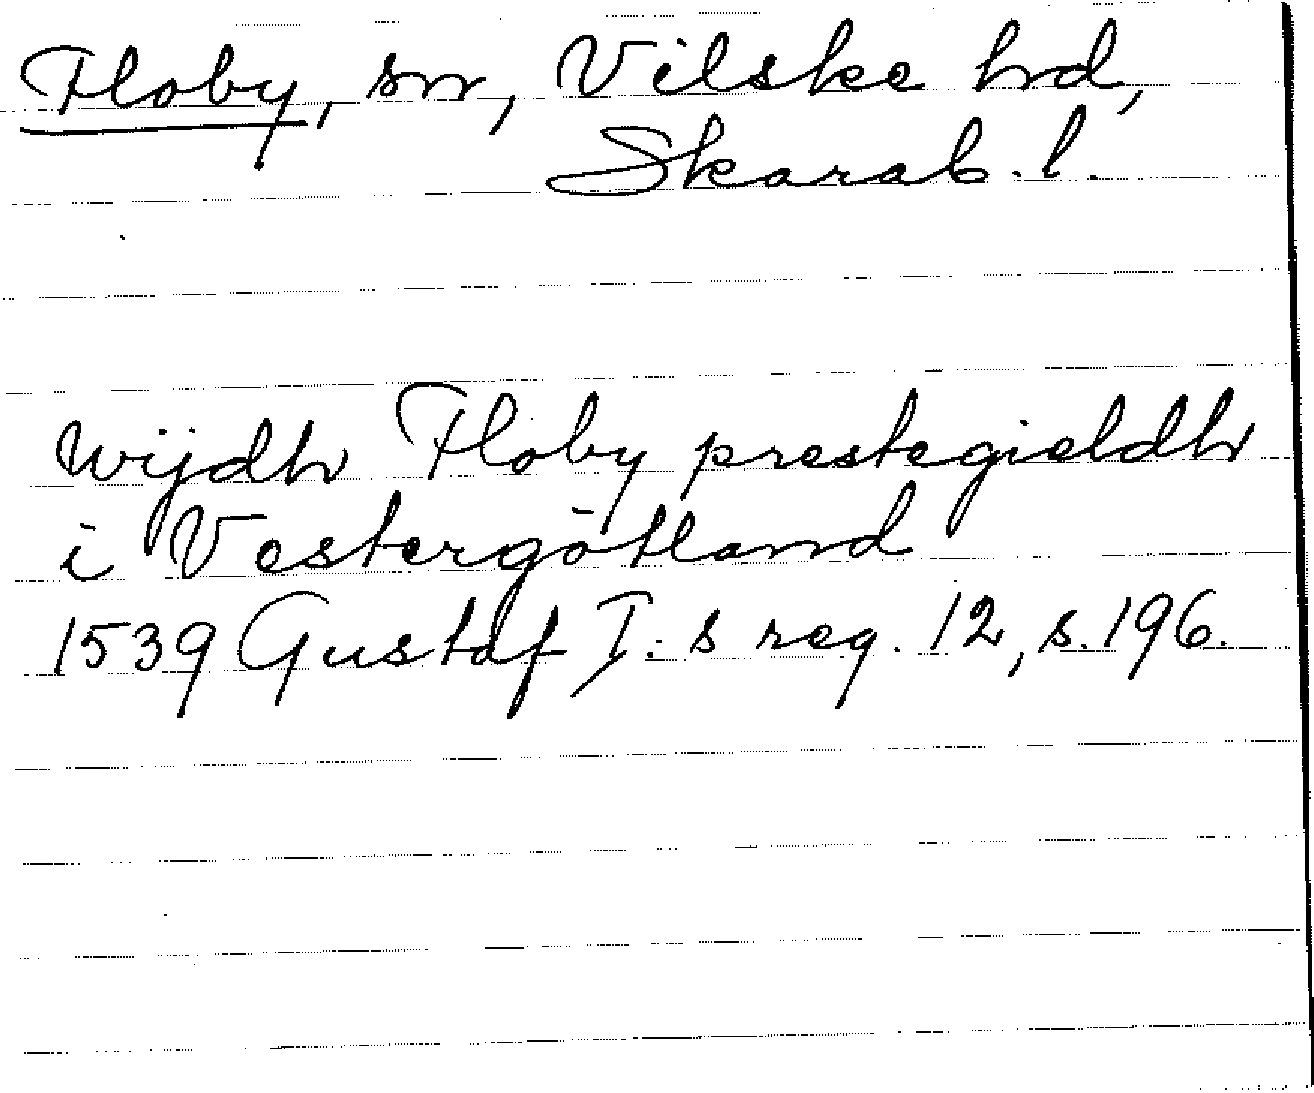 Floby, sn, Vilske hd,
Skarab. l.
wijdh Floby prestegieldh
i Vestergötland
1539 Gustaf I:s reg. 12, s. 196.